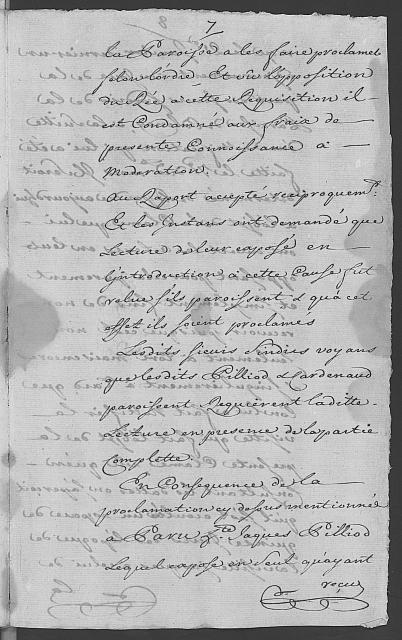 7
la Paroisse a les faire proclamer
selon l'ordre, Et vû l'opposition
du Rée a cette Requisition il
est Condamné aux frais de
presente Connoissance à
Moderation,
du Raport accepté reciproquemt.
Et les Instans ont demandé que
Lecture de leur exposé en
l'introduction à cette Cause fut
relue s'ils paroissent & qua cet
effet ils soient proclamés
Lesdits sieurs Sindics voyans
que lesdits Pilliod & Cardenaud
paroissent Requèrent laditte
Lecture en presence de la partie
Complette.
En Consequence de la
proclamation cy dessus mentionnée
à Paru Jaques Pilliod
Lequel expose en seul quayant
recu